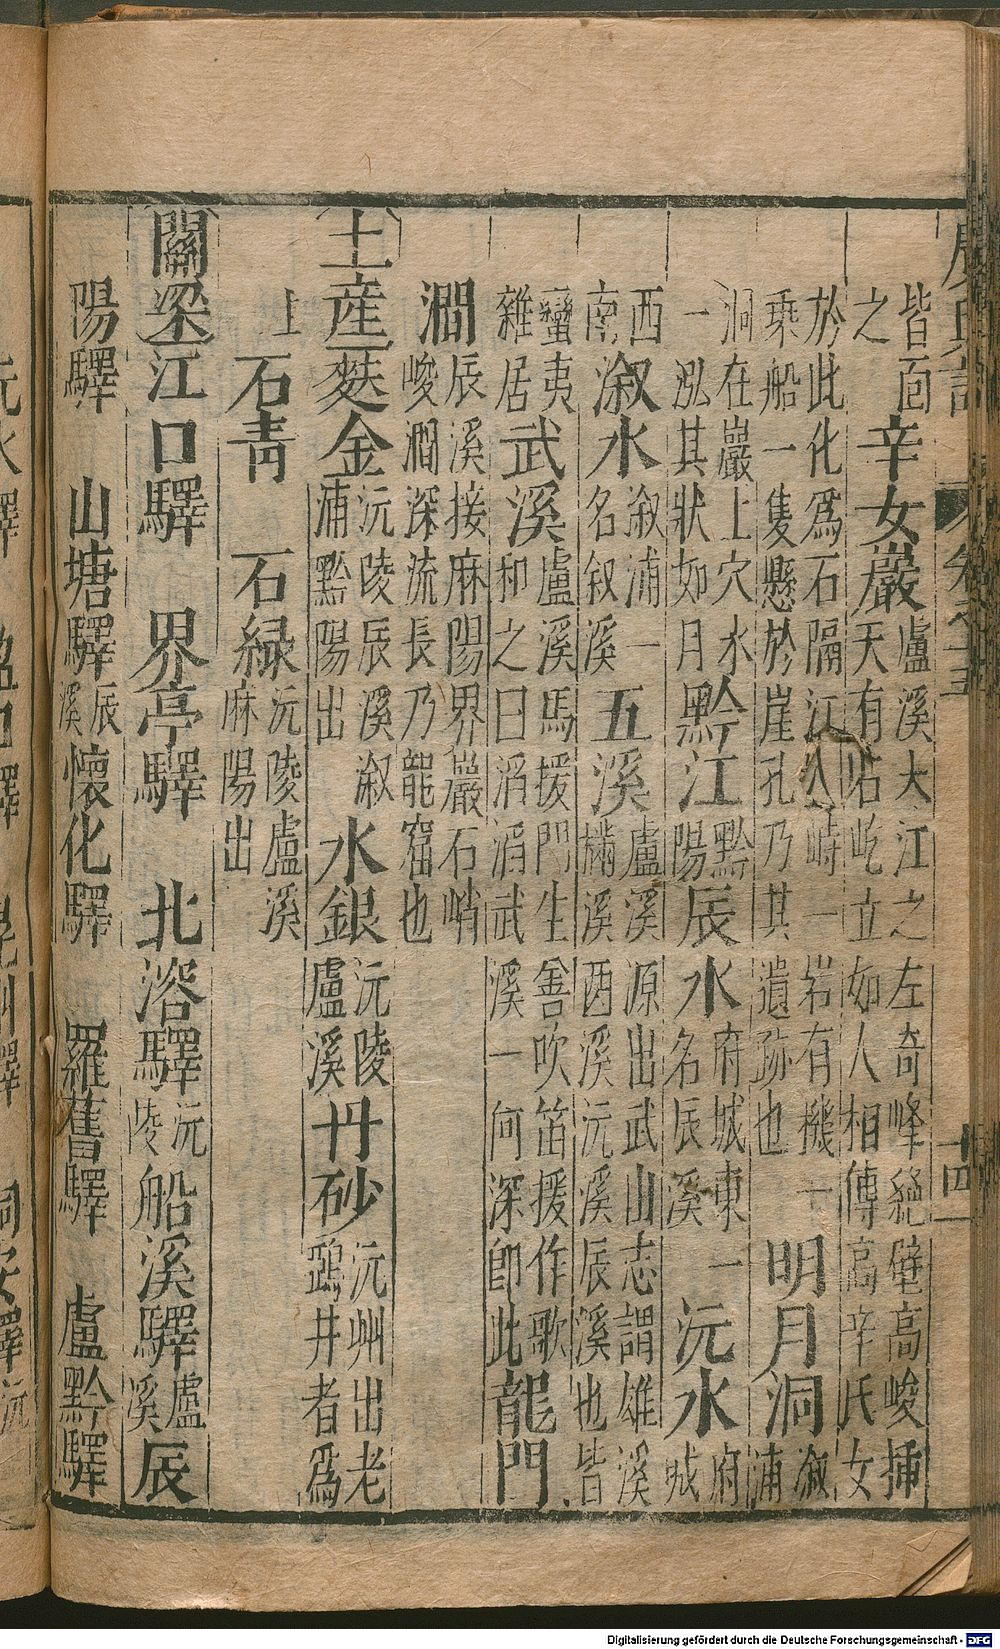 皆面之 辛女巖 盧溪大江之左奇峰絕壁高峻插天有石屹立如人相傳高辛氏女
於此化爲石隔江 峙一岩有機一乘船一隻懸於崖孔乃其遺跡也 明月洞 溆浦
洞在巖上穴水一泓其狀如月 黔江 黔陽 辰水 府城東一名辰溪 沅水 府城
西南 溆水 溆浦一名叙溪 五溪 盧溪源出武山志謂雄溪樠溪酉溪沅溪辰溪也皆
蠻夷雜居 武溪 盧溪馬援門生善吹笛援作歌和之曰滔滔武溪一何深即此 龍門
澗 辰溪接麻陽界巖石峭峻澗深流長乃龍窟也
土產 麩金 沅陵辰溪溆浦黔陽出 水銀 沅陵盧溪 丹砂 沅州出老鴉井者爲
上 石青 石緑 沅陵盧溪麻陽出
關梁 江口驛 界亭驛 北溶驛 沅陵 船溪驛 盧溪 辰
陽驛 山塘驛 辰溪 懷化驛 羅舊驛 盧黔驛
卷之十五
十四
Digitalisierung gefördert durch die Deutsche Forschungsgemeinschaft - DFG